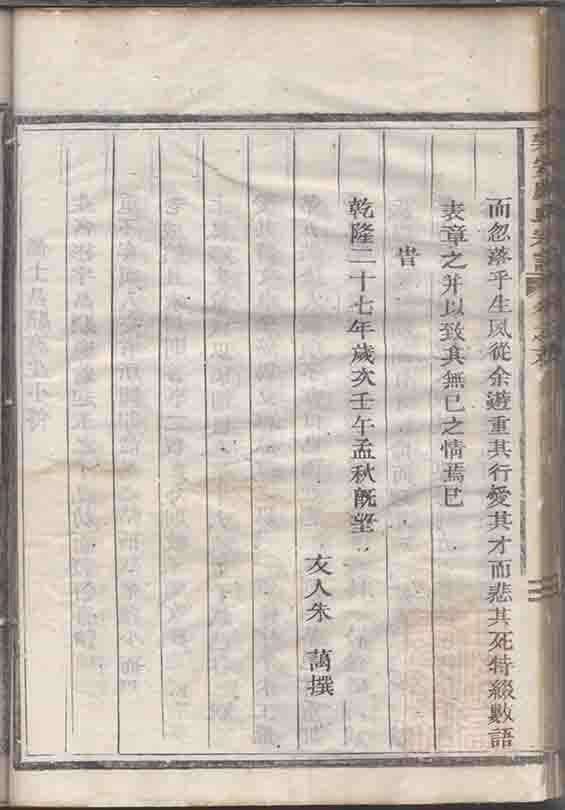 而忽落乎生夙從余遊重其行愛其才而悲其死特綴數語
表章之并以致其無已之情焉已
旹
乾隆二十七年歲次壬午孟秋旣望
友人朱 萬撰